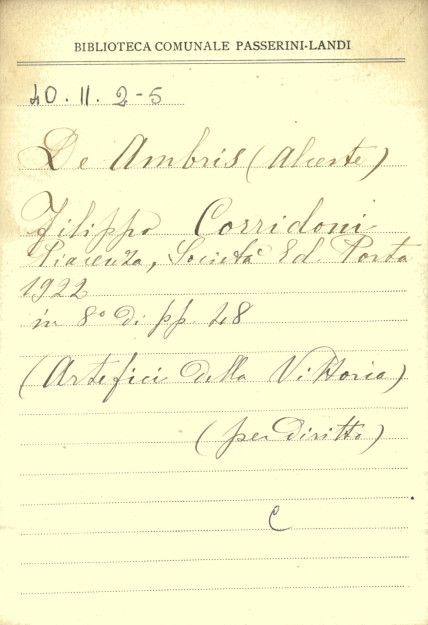 BIBLIOTECA COMUNALE PASSERINI-LANDI
40. II. 2-5
De Ambris (Alceste)
Filippo Corridoni
Piacenza, Società Ed. Porta
1922
in 8° di pp 48
(Artefici della Vittoria)
(per diritto)
C